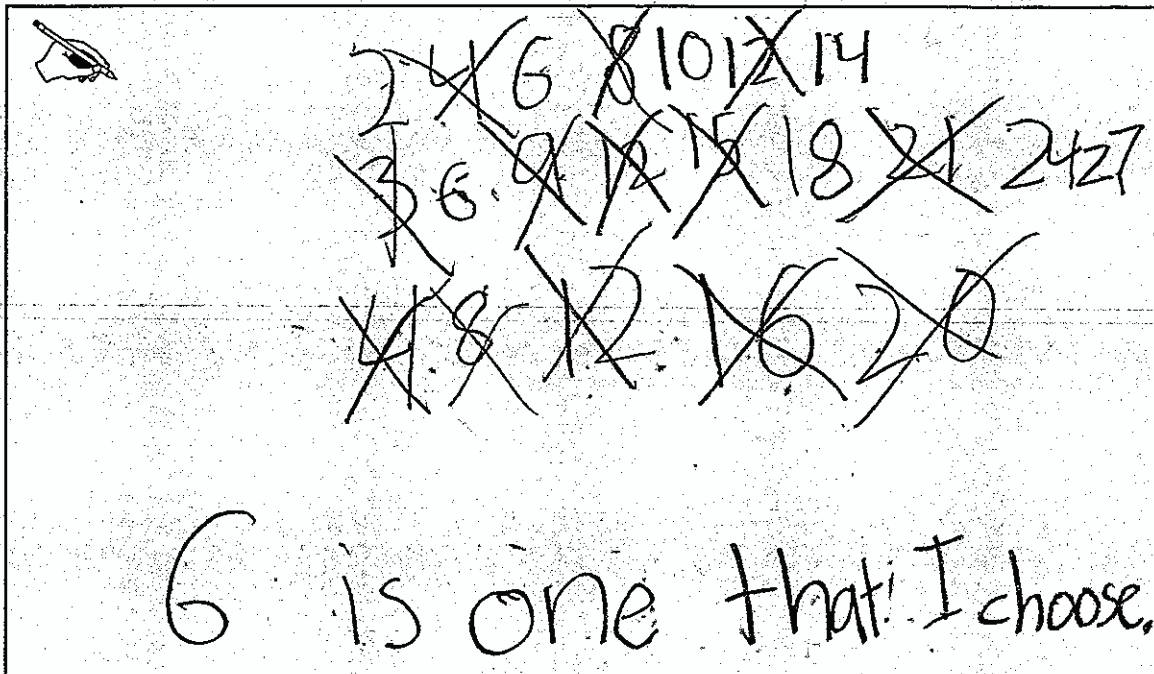 2 4 6 8 10 12 14
3 6 9 12 15 18 21 24 27
4 8 12 16 20
6 is one that I choose.